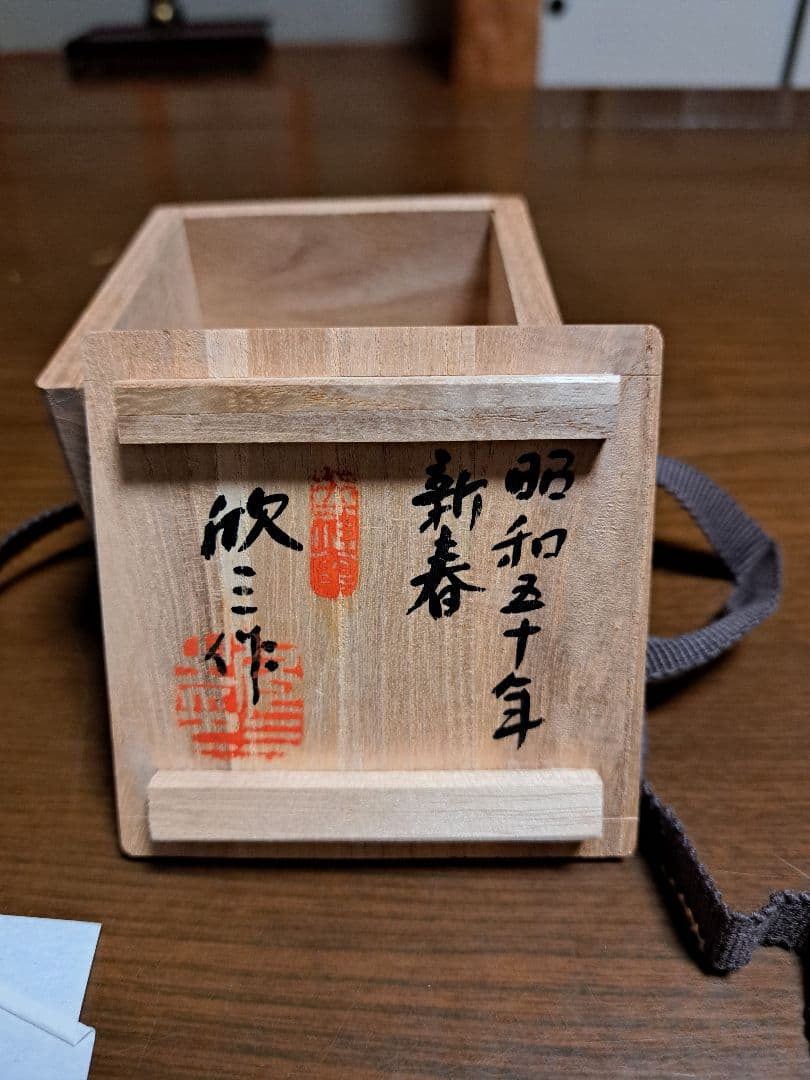 昭和五十年
新春
欣三作